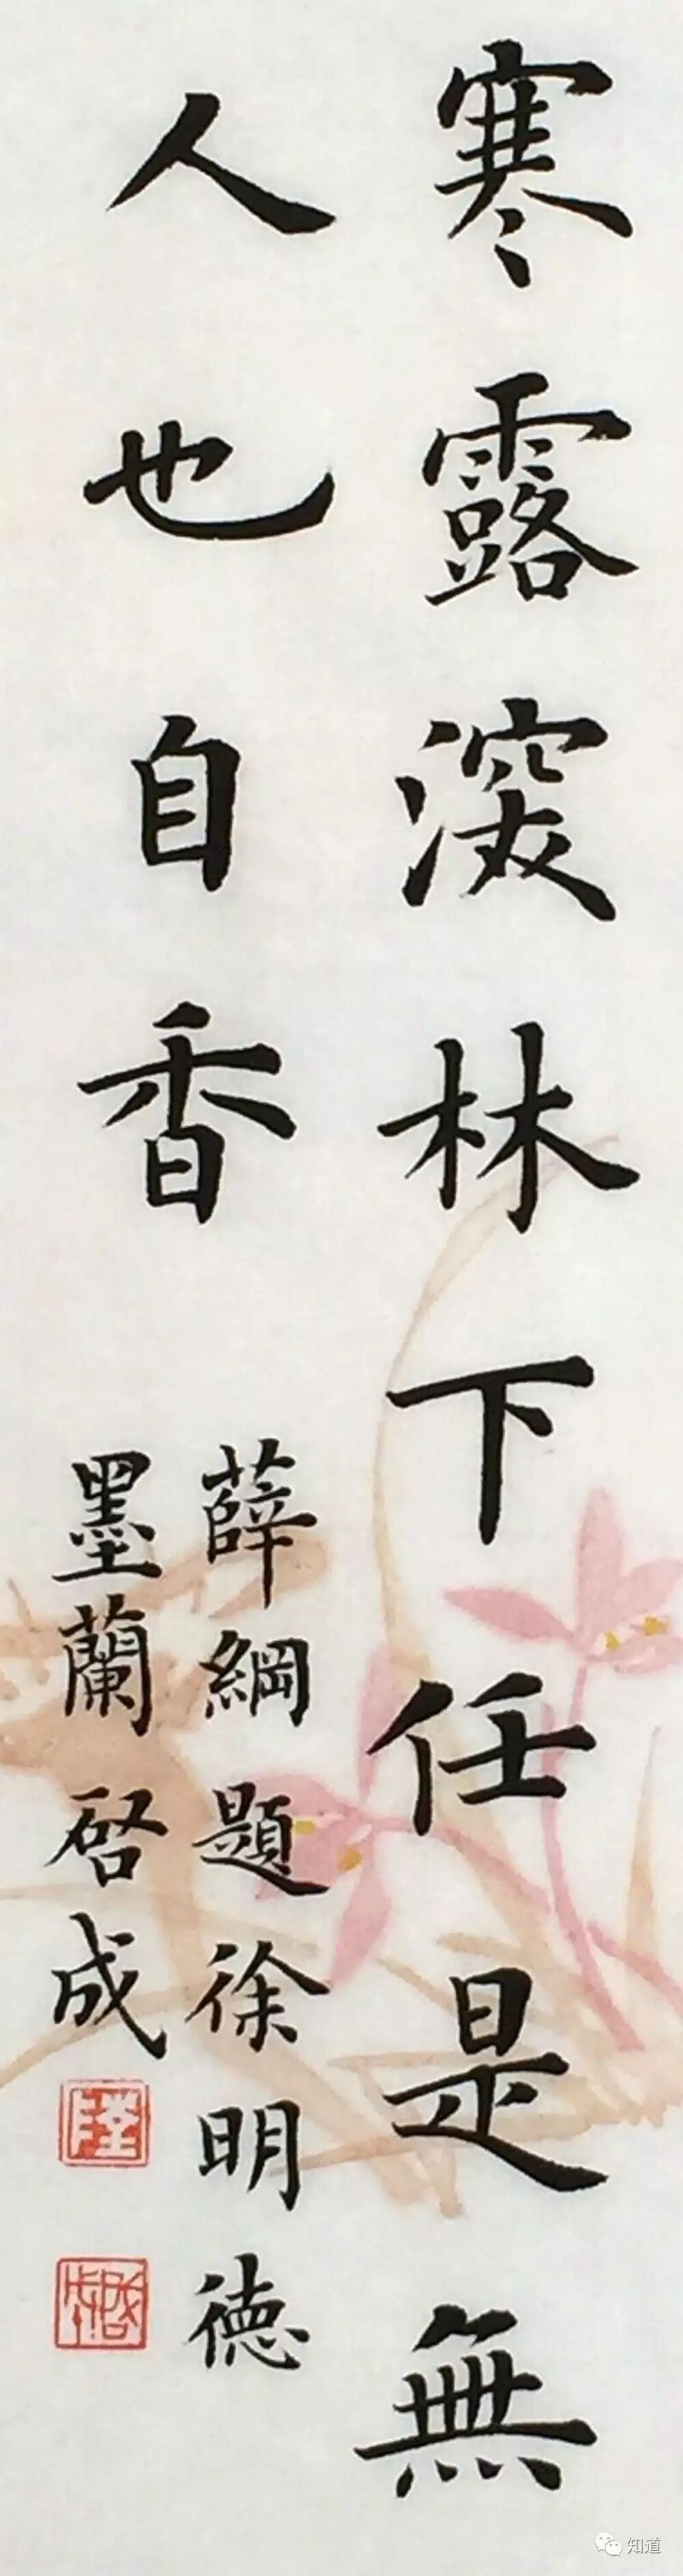 寒露深林下任是無
人也自香
薛綱題徐明德
墨蘭啓成
知道